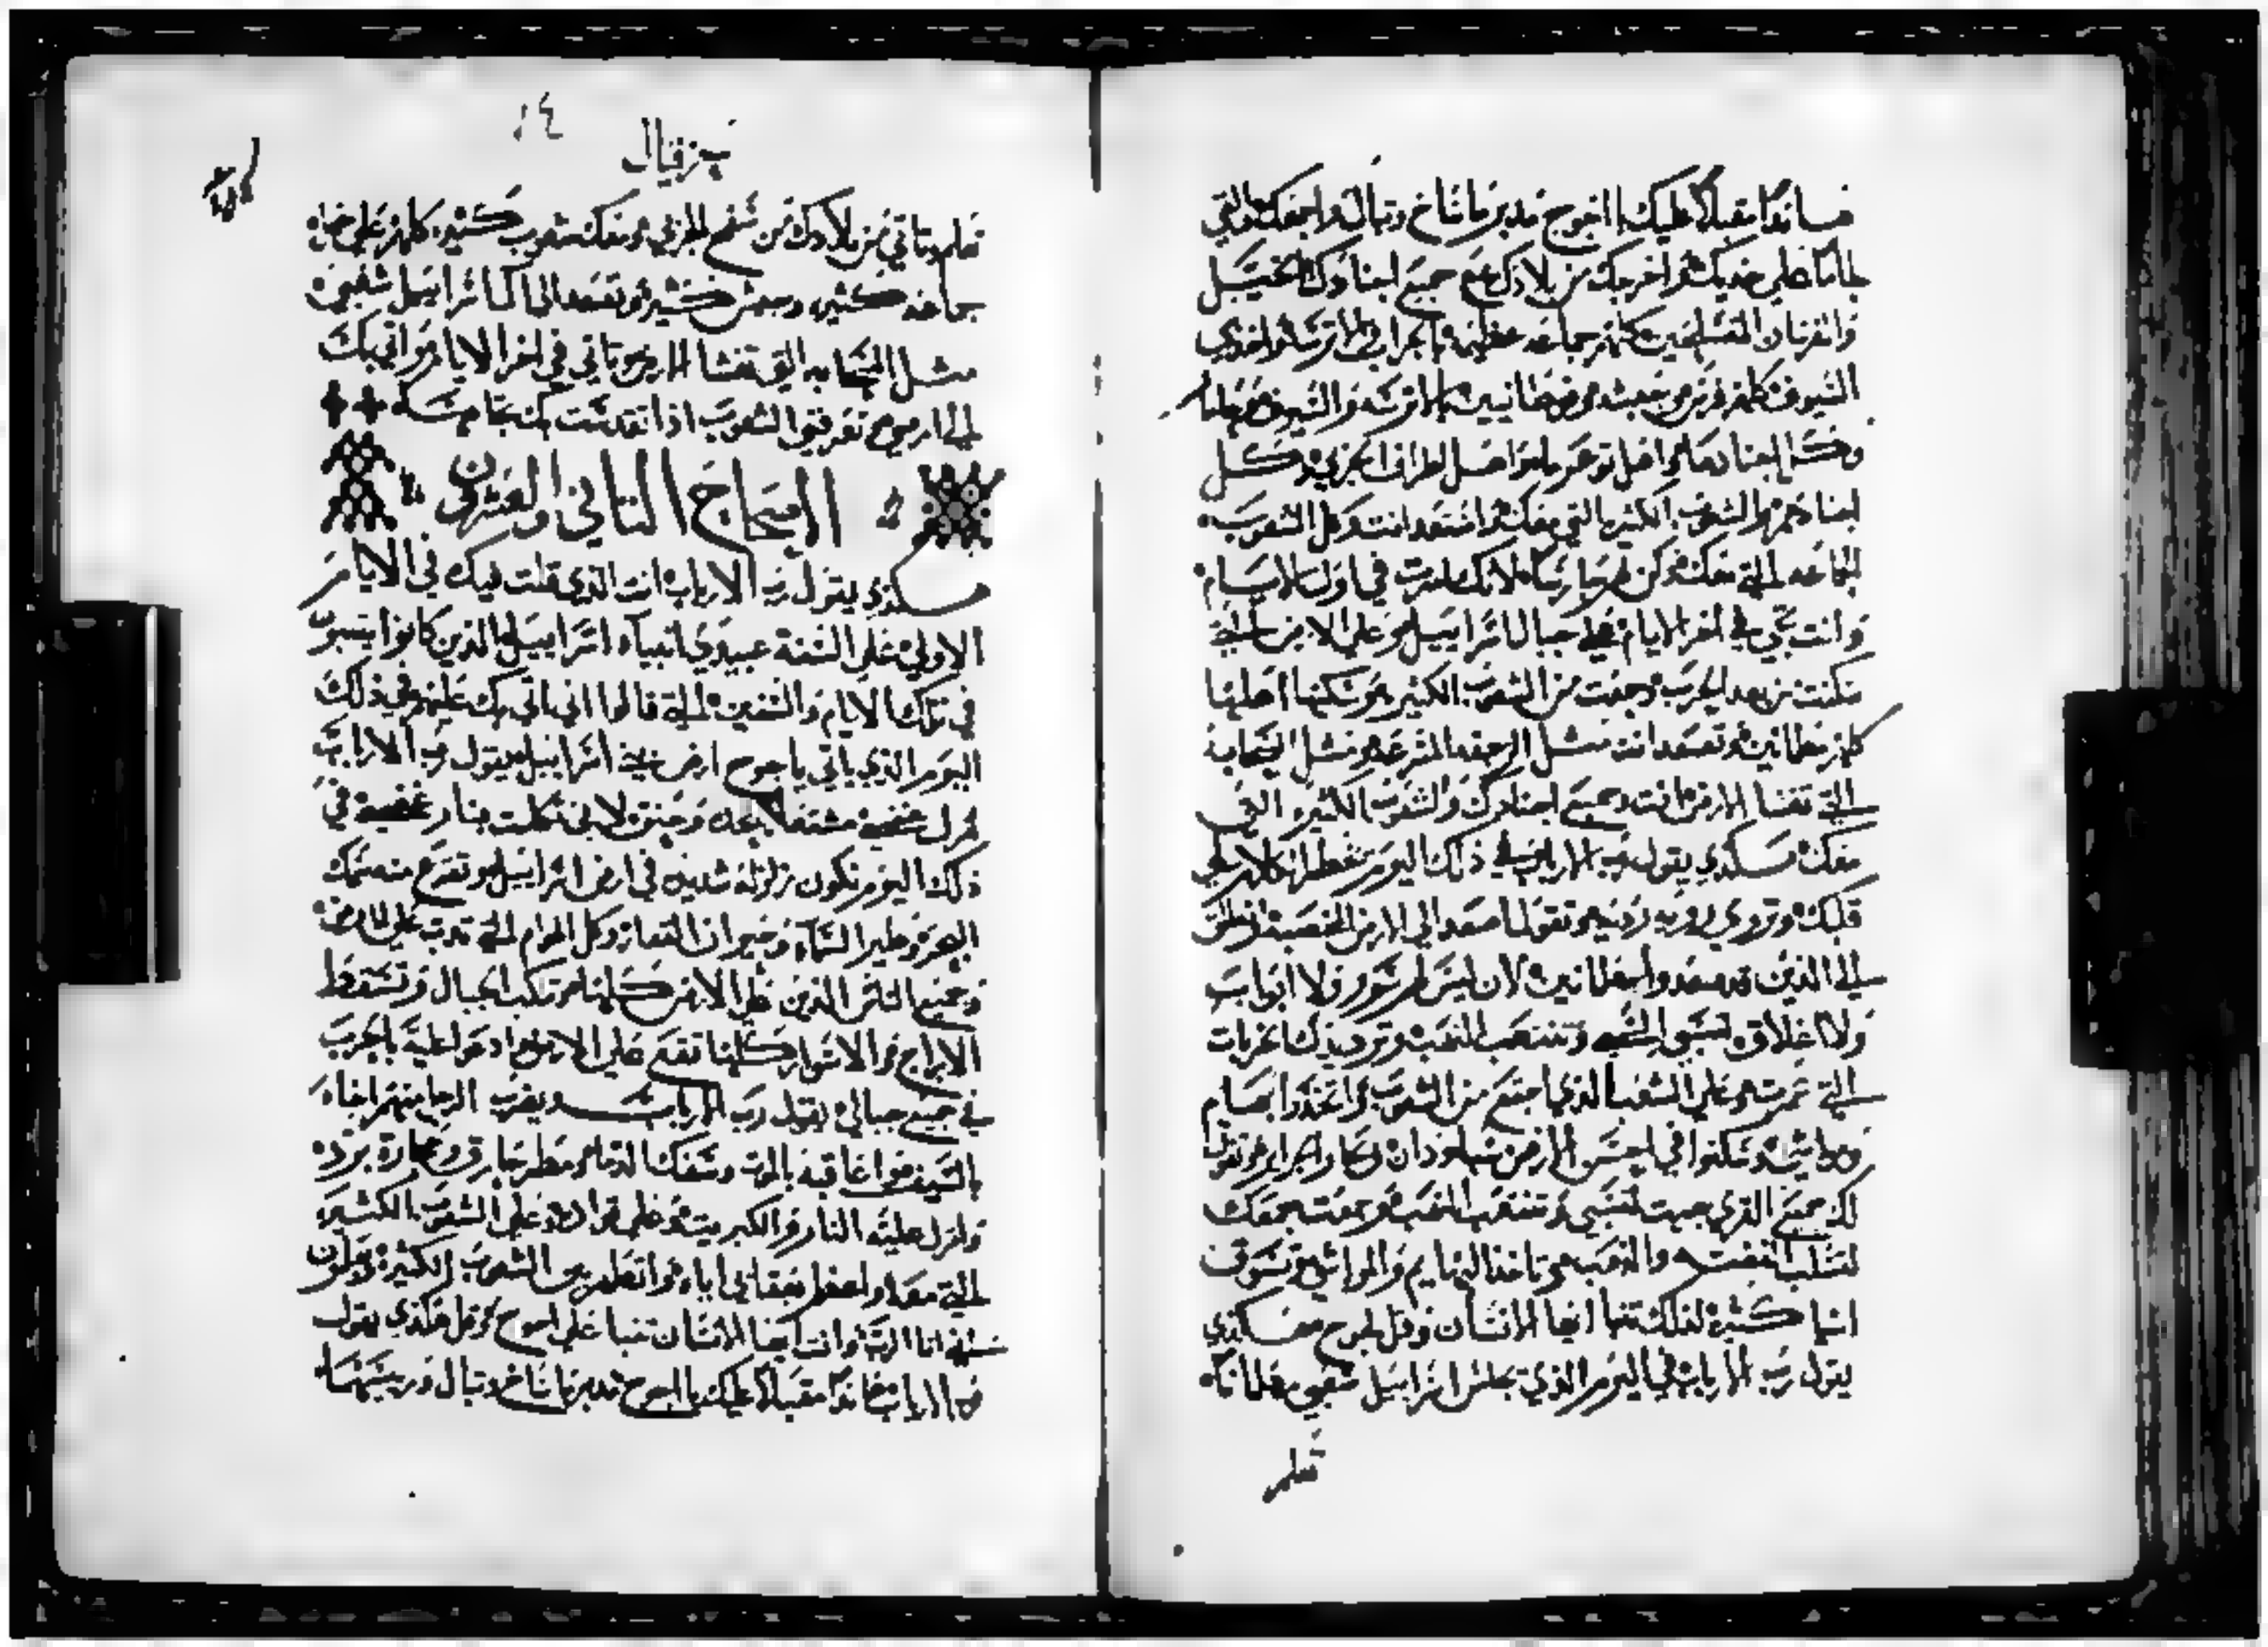 هانذا مقبلا عليك يا اجوج مدبر ماشاخ وتبال واجمعك والقي
لجاما علي حنيك واخرجك من بلادك مع جميع اجنادك الخيل
والفرسان المتسلحين كلهم جماعه عظيمه بالحراب والاترسه واخذي
السيوف كلهم فرس وحبشه مطمانيين بالاترسه والسيوف
وكل اجنادها واهل توجرما من اصل اطراف الجربي وكل
اجنادهم والشعوب الكثيره التي معك استعد انت وكل الشعوب
الجماعه التي معك وكن لهم حارسا لانك امرت في اول الايام
وانت تجي في اخر الايام علي جبال اسراييل وعلي الارض التي
سكنت من بعد الحرب وجمعت من الشعوب الكثيره وسكنها اهلها
كلهم مطمانين وتصعد انت مثل الرجفه المسرعه ومثل السحابه
التي تغشا الارض انت وجميع اجنادك والشعوب الكثيره التي
معك هكذي يقول رب الارباب في ذلك اليوم يخطر الكلام علي
قلبك وتروي رويه رديه وتقول اصعد الي الارض الخصبه وانطلق
الي الذين قد صعدوا مطمانين لان ليس لهم سور ولا ابواب
ولا اغلاق لتسبي السبي وتنتهب النهب وترد يدك الخربات
التي عمرت وعلي الشعب الذي اجتمع من الشعوب واتخذوا بهايم
ومواشي وسكنوا في احسن الارض سبا ودان وتجار
لك جميع القري جيت لتسبي وتنتهب النهب وجمعت جمعك
لتسلب الفضه والذهب وتاخذ البهايم والمواشي وتسوق
اشيا كثيره لذلك تنبا ايها الانسان وقل لجوج هكذي
يقول رب الارباب في اليوم الذي يجلس اسراييل شعبي مطمانا
تعلم
حزقيال
١٤
تعلم وتاتي من بلادك من سفح الجربي ومعك شعوب كثيره كلهم علي خيل
جماعه كثيره وجيش كثير وتصعد الي اسراييل شعبي
مثل السحابه التي تغشا الارض وتاتي في اخر الايام واتي بك
الي ارضي وتعرفني الشعوب اذا تقدست بك تجاههم
الاصحاح الثاني والعشرون
هكذي يقول رب الارباب انت الذي قلت فيك في الايام
الاولي علي السنة عبيدي انبياء اسراييل الذين كانوا يتنبون
في تلك الايام والسنين التي قالوا اني اتي بك عليهم وفي ذلك
اليوم الذي ياتي ياجوج ارض بني اسراييل يقول رب الارباب
ينزل غضبي مشتعلا بحده وحنق لاني تكلمت بنار غضبي في
ذلك اليوم تكون زلزله شديده في ارض اسراييل وتفزع منه سمك
البحر وطير السماء وحيوان القفار وكل الهوام التي تدب علي الارض
وجميع الناس الذين علي الارض كلها وتنكب الجبال وتسقط
الابراج والاسوار كلها تقع علي الارض وادعو عليه بالحرب
في جميع جبالي يقول رب الارباب ويضرب الرجل منهم اخاه
بالسيف واعاقبه بالموت وسفك الدماء ومطر جارف وحجارة برد
وانزل عليه النار والكبريت وعلي قواده وعلي الشعوب الكثيره
التي معه واعظم واتطهر بين الشعوب الكثيره ويعلمون
اني انا الرب وانت ايها الانسان تنبا علي اجوج وقل هكذي يقول
رب الارباب هانذا مقبلا عليك يا اجوج مدبر ماشاخ وتبال ورييسهما